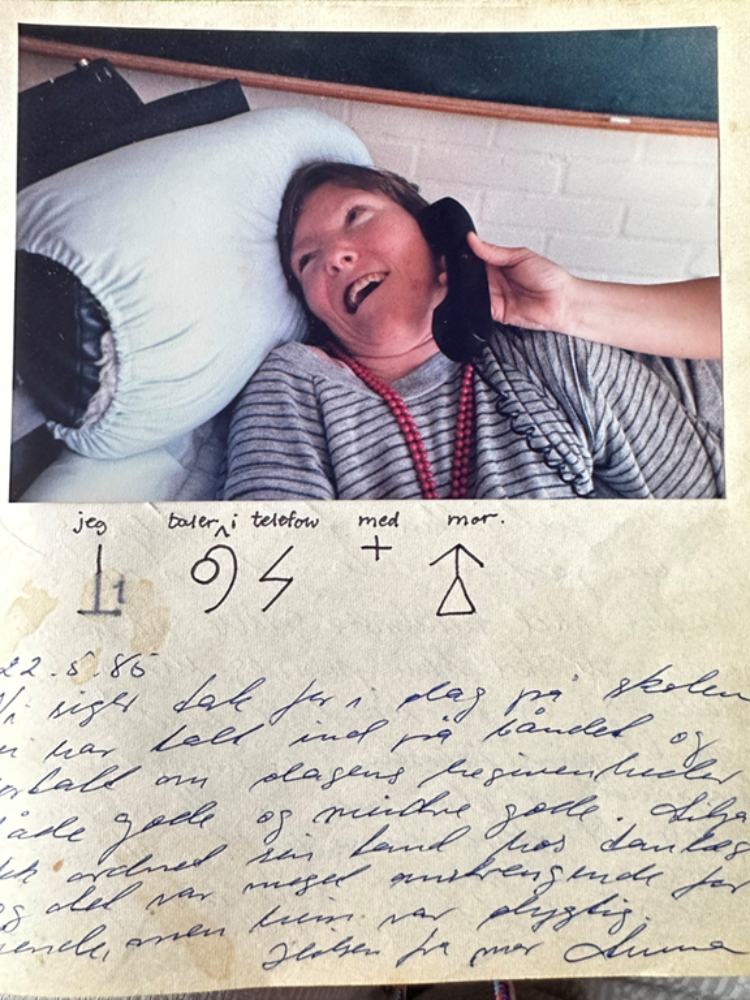 jeg taler i telefon med mor.
1
22.5.85
Vi siger tak for i dag på skolen
har talt ind på båndet og
fortalt om dagens begivenheder
både gode og mindre gode. Silja
fik ordnet sin tand hos tandlæg
og det var meget anstrengende for
hende, men hun var dygtig.
Hilsen fra mor Anna